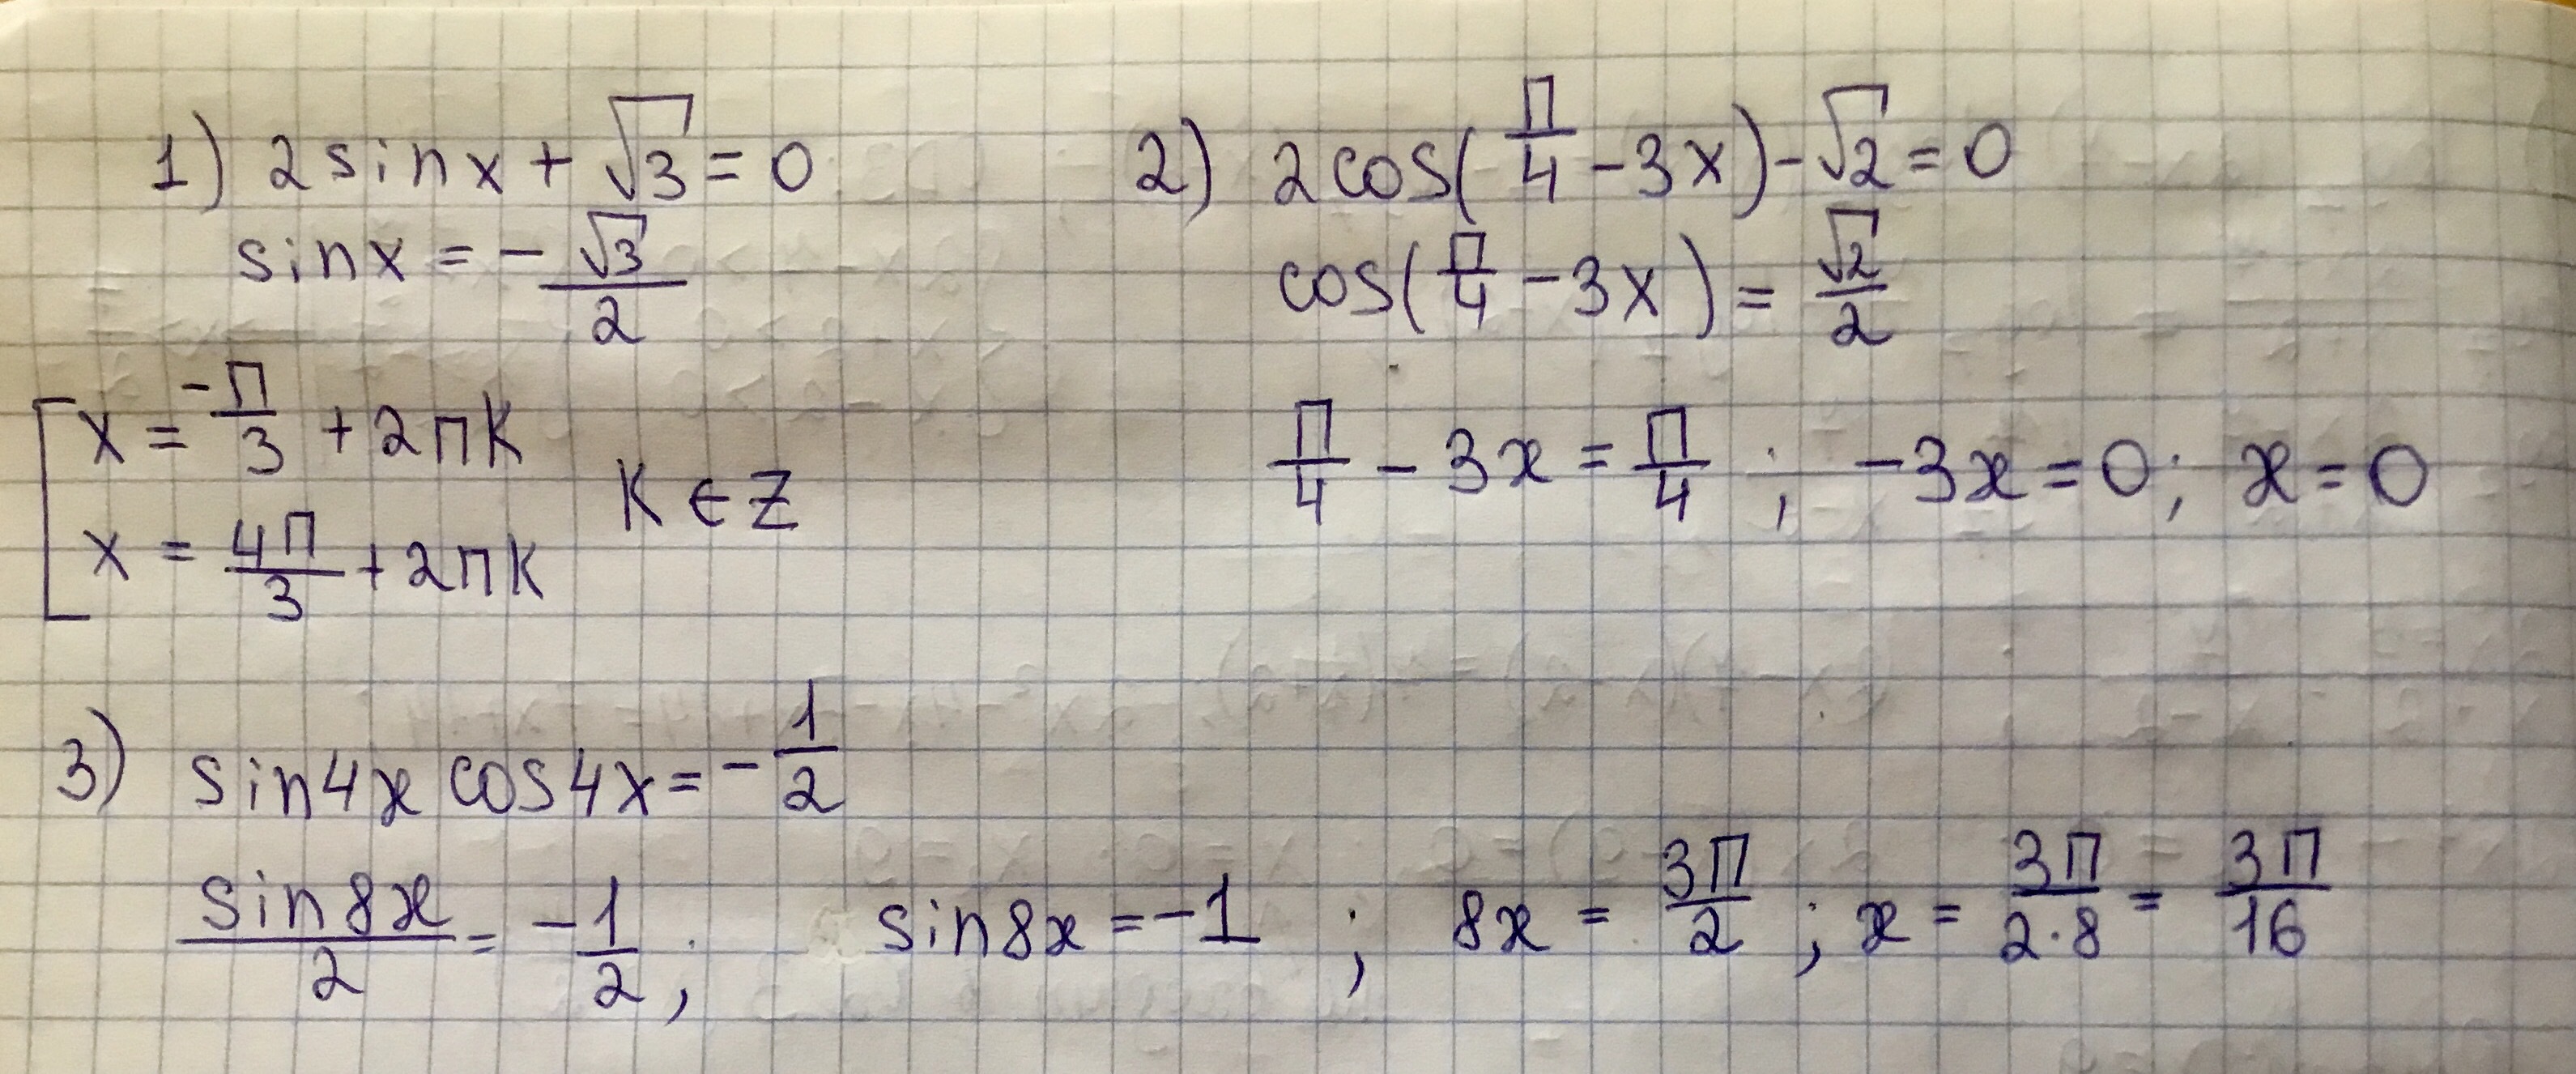 1) 2sinx + √3 = 0
sinx = -√3/2
[ x = -π/3 + 2πk
x = 4π/3 + 2πk
k ∈ Z
2) 2cos(π/4 - 3x) - √2 = 0
cos(π/4 - 3x) = √2/2
π/4 - 3x = π/4 ; -3x = 0; x = 0
3) sin4x cos4x = -1/2
sin8x/2 = -1/2; sin8x = -1 ; 8x = 3π/2 ; x = 3π/2·8 = 3π/16